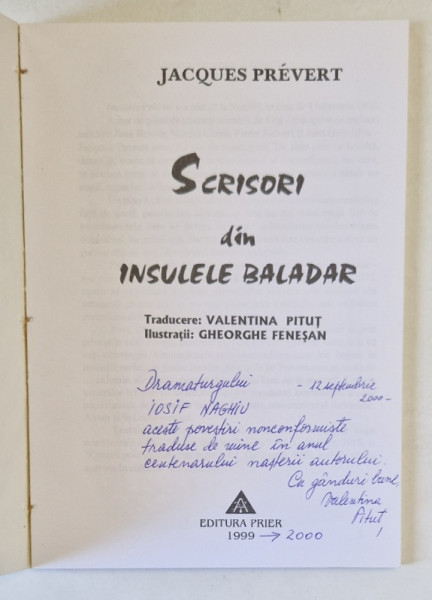 JACQUES PRÉVERT
SCRISORI
din
INSULELE BALADAR
Traducere: VALENTINA PITUŢ
Ilustraţii: GHEORGHE FENEŞAN
Dramaturgului - 12 septembrie
2000 -
IOSIF NAGHIU
aceste povestiri nonconformiste
traduse de mine în anul
centenarului naşterii autorului.
Cu gânduri bune,
Valentina
Pituţ
EDITURA PRIER
1999 → 2000